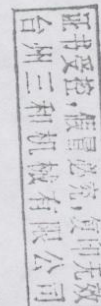 证书受控,假冒必究,复印无效
台州三和机械有限公司